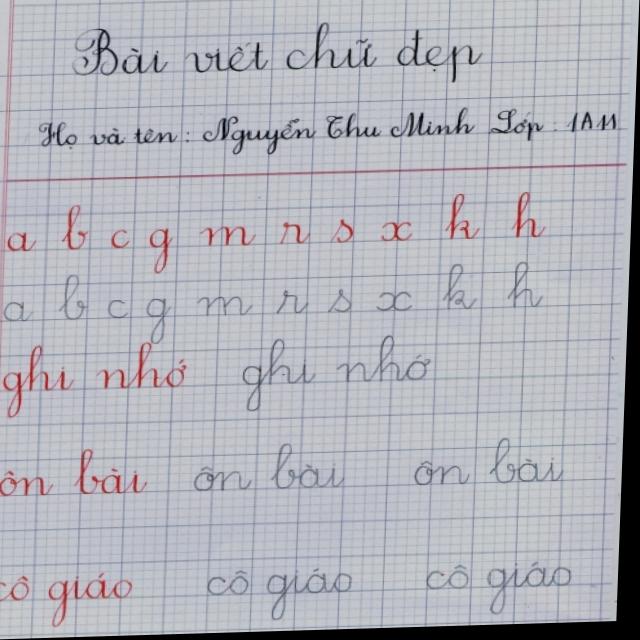 Bài viết chữ đẹp
Họ và tên: Nguyễn Thu Minh Lớp: 1A11
a b c g m r s x k h
a b c g m r s x k h
ghi nhớ ghi nhớ
ôn bài ôn bài ôn bài
cô giáo cô giáo cô giáo